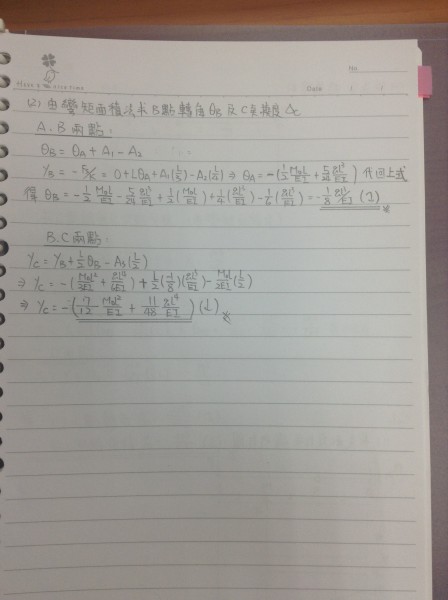 No.
Date
(2) 由彎矩面積法求B點轉角θB及C點撓度Δc
A.B兩點:
θB = θA + A1 - A2
YB = - = 0 + LθA + A1() - A2() ⇒ θA = -(1/2 M0L/EI + 5/24 qL³/EI) 代回上式
得 θB = -1/2 M0L/EI - 5/24 qL³/EI + 1/2(M0L/EI) + 1/4(qL³/EI) - 1/6(qL³/EI) = -1/8 qL³/EI
B.C兩點:
YC = YB + L/2 θB - A3(L/2)
⇒ YC = -(M0L²/2EI + qL⁴/6EI) + L/2(-1/8)(qL³/EI) - M0L/2EI(L/2)
⇒ YC = -(7/12 M0L²/EI + 11/48 qL⁴/EI) (↓)